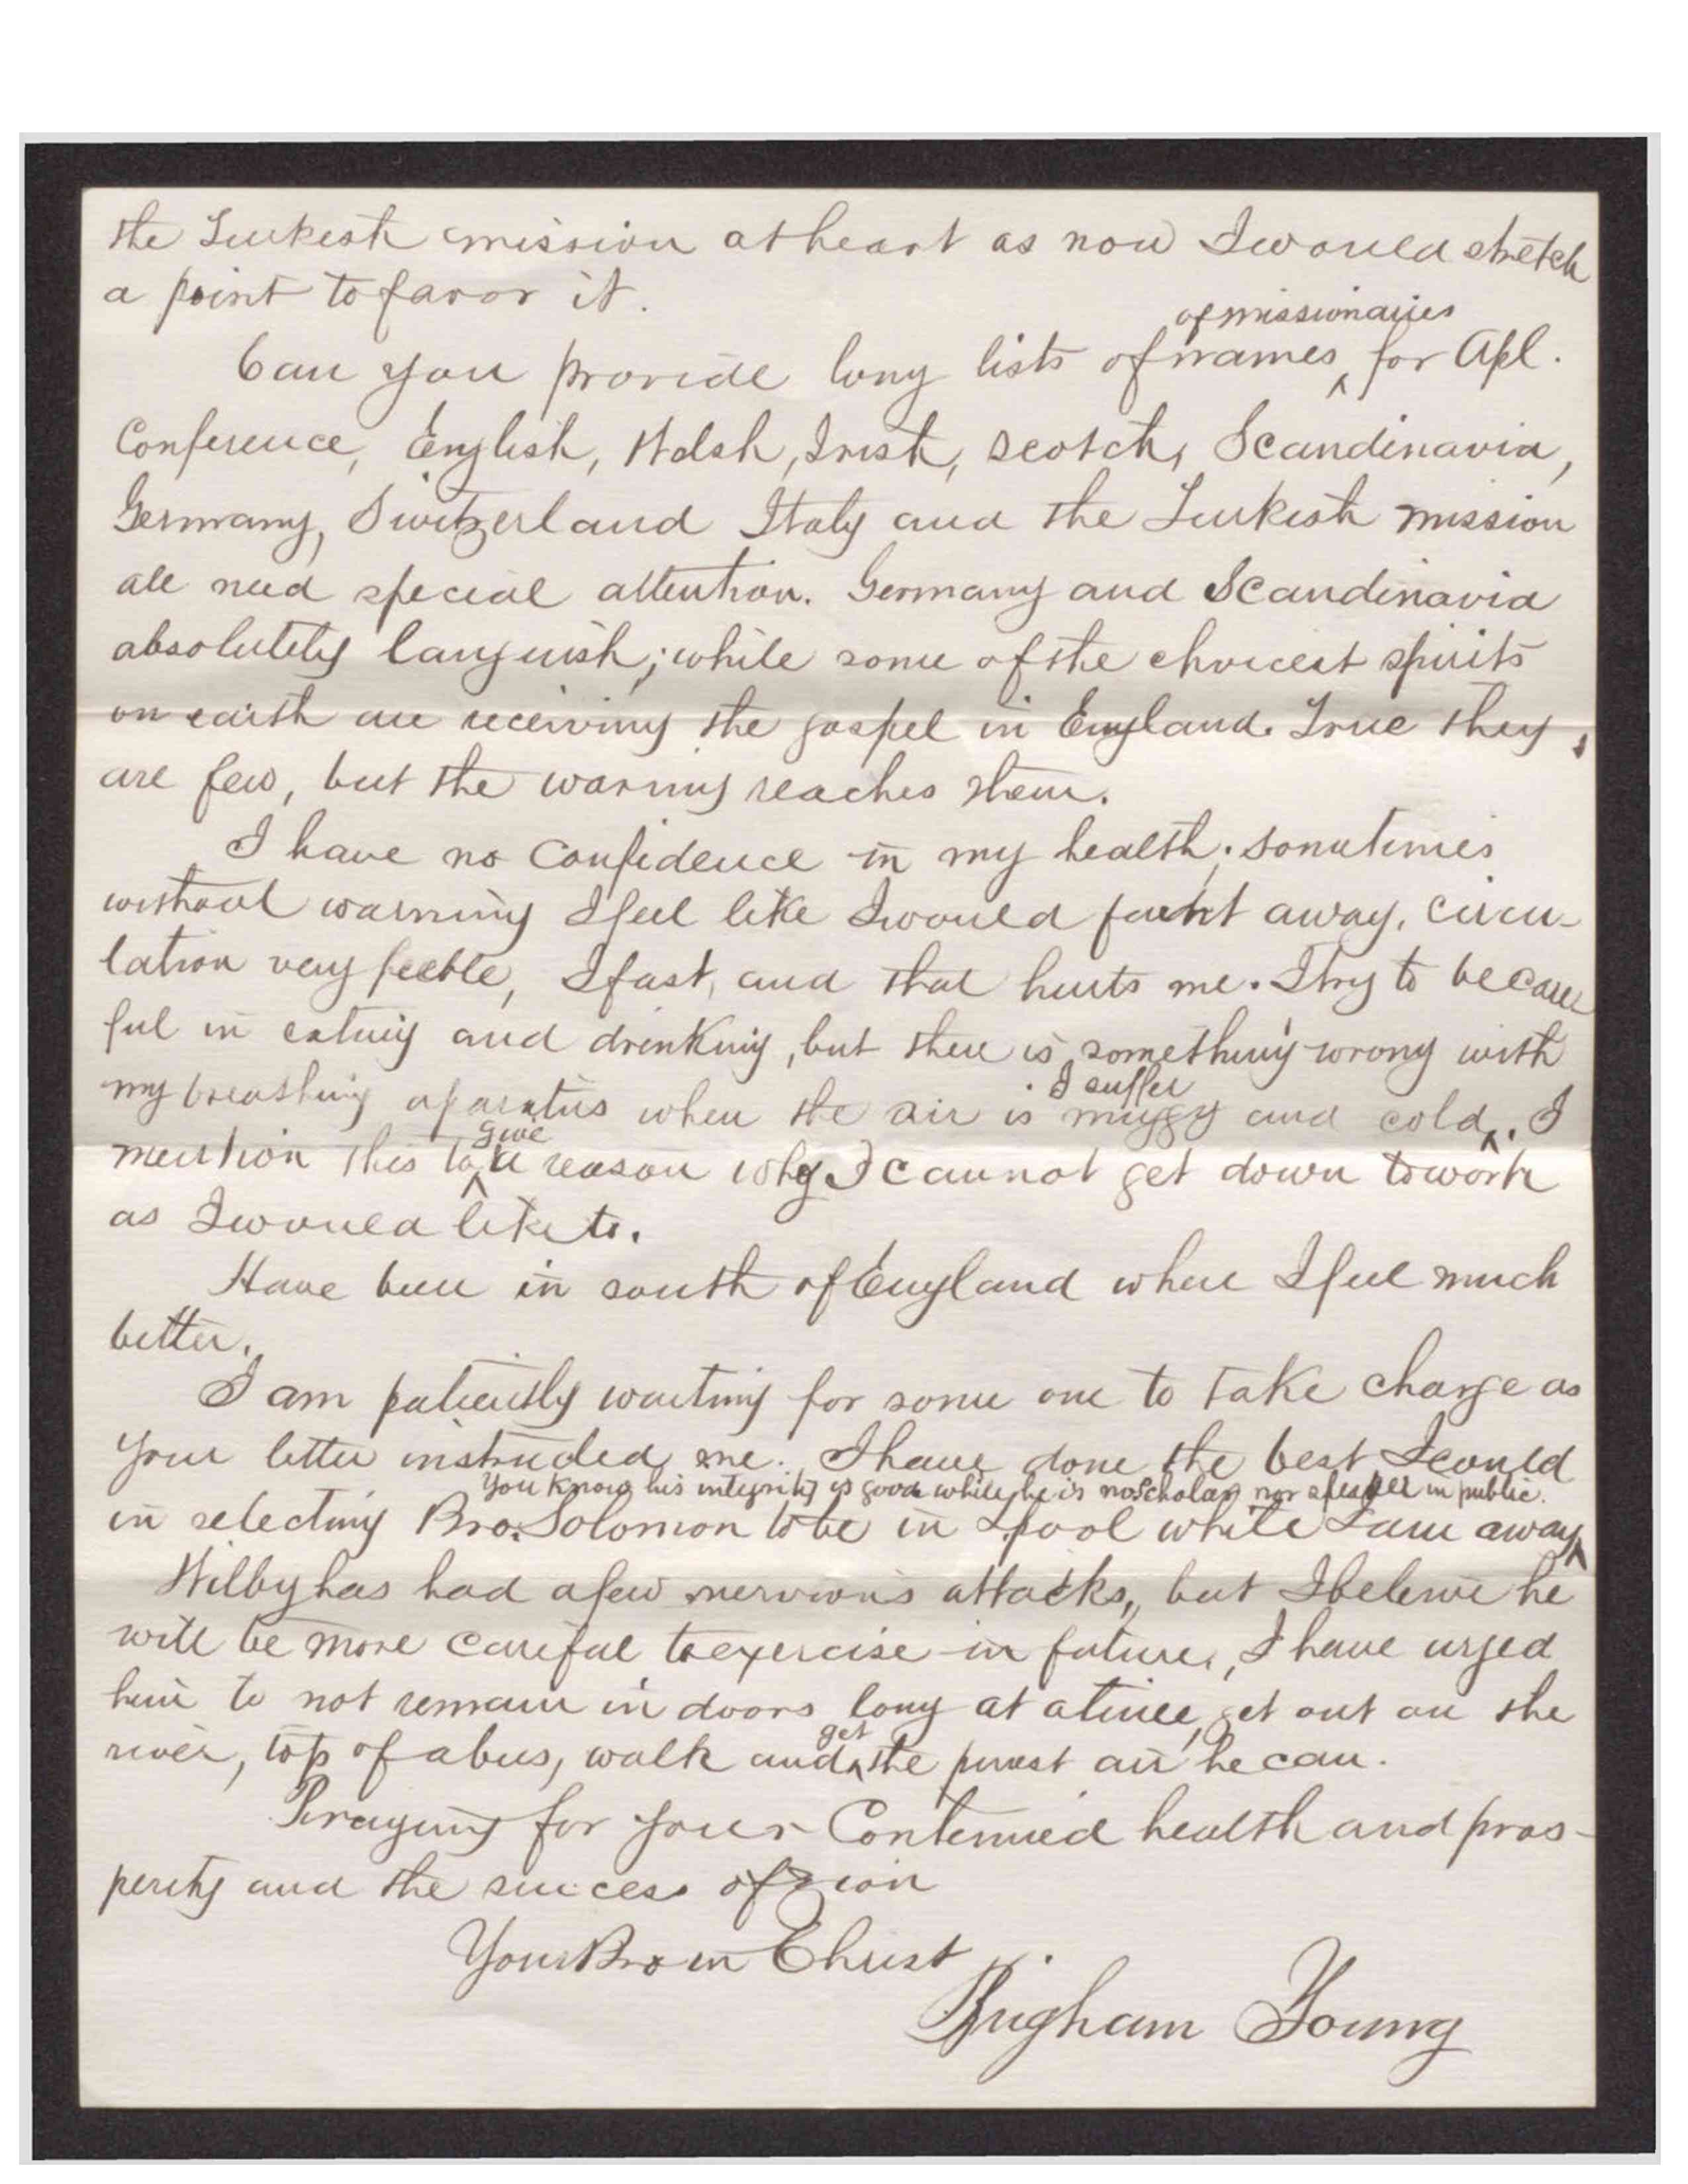 the Turkish mission at heart as now I would stretch
a point to favor it.
of missionaries
Can you provide long lists of names ^ for Apl.
Conference, English, Welsh, Irish, Scotch, Scandinavia,
Germany, Switzerland Italy and the Turkish mission
all need special attention. Germany and Scandinavia
absolutely languish; while some of the choicest spirits
on earth are receiving the gospel in England. True they
are few, but the warning reaches them.
I have no confidence in my health; sometimes
without warning I feel like I would faint away, circu-
lation very feeble, I fast, and that hurts me. I try to be care
ful in eating and drinking, but there is something wrong with
. I suffer
my breathing aparatus when the air is muggy and cold ^. I
give
mention this to ^ a reason why I cannot get down to work
as I would like to.
Have been in south of England where I feel much
better.
I am patiently waiting for some one to take charge as
your letter instructed me. I have done the best I could
You know his integrity is good while he is no Scholar nor speaker in public.
in selecting Bro. Solomon to be in Lpool while I am away ^
Wilby has had a few nervous attacks, but I beleive he
will be more careful to exercise in future, I have urged
him to not remain in doors long at a time, get out on the
get
river, top of a bus, walk and ^ the purest air he can.
Praying for your Contenued health and pros-
perity and the success of Zion
Your Bro in Christ
Brigham Young